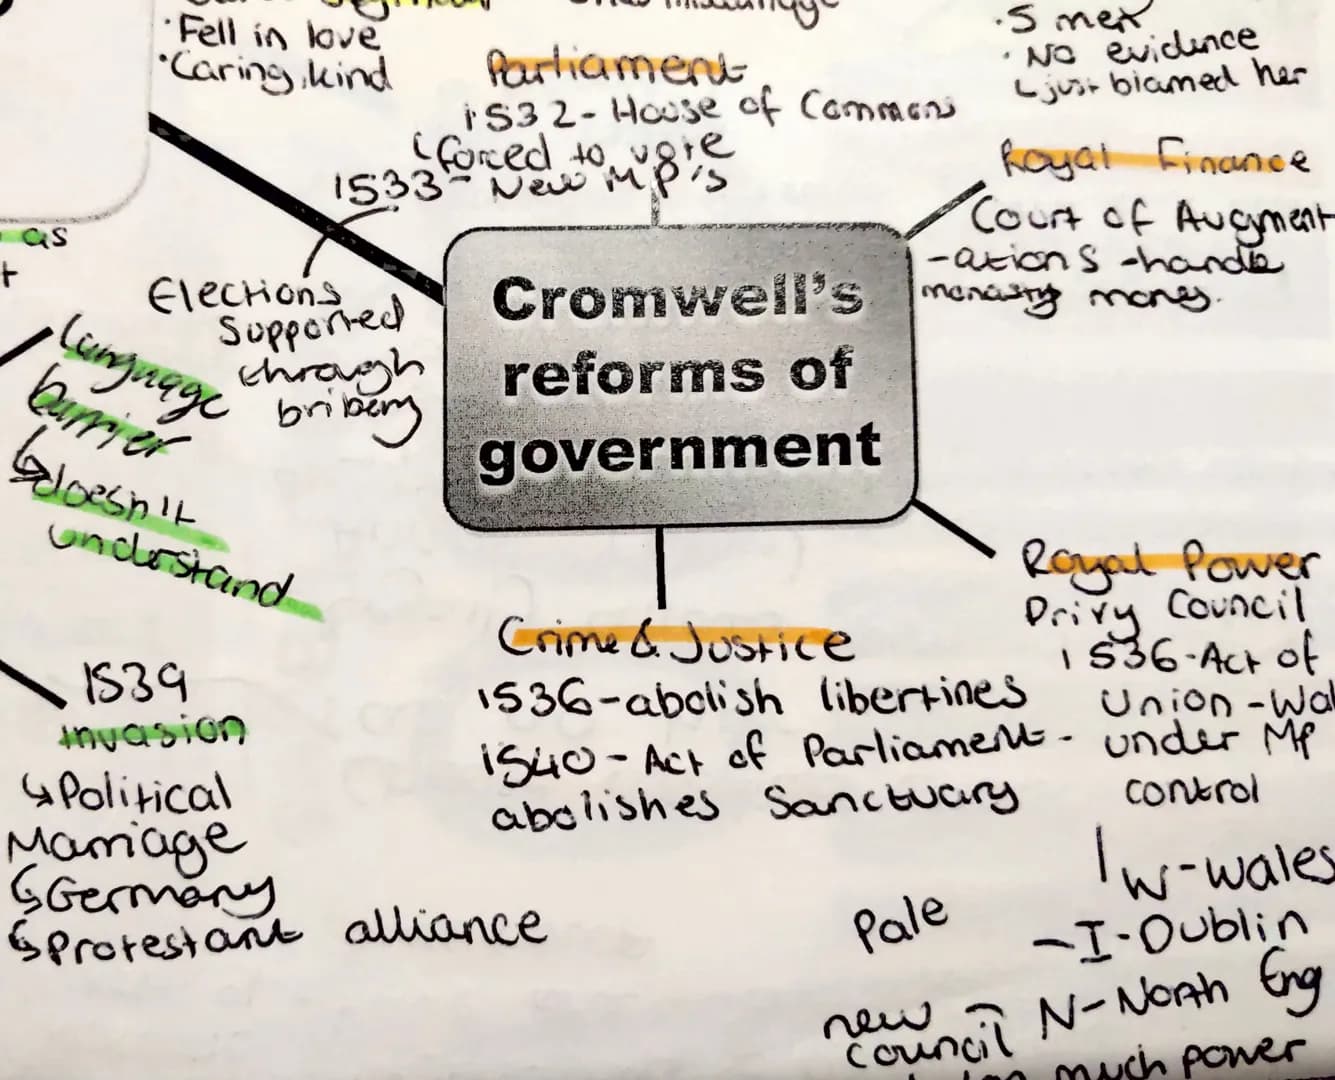 Fell in love
Caring, kind
Parliament
1532 - House of Commons
forced to vote
1533 - New MP's
Elections
Supported
through
bribery
5 men
No evidence
just blamed her
Royal Finance
Court of Augment
-ations - handle
monastry money.
as
Language
barrier
doesn't
understand
Cromwell's
reforms of
government
1539
invasion
Political
Marriage
Germany
Protestant alliance
Crime & Justice
1536 - abolish libertines
1540 - Act of Parliament -
abolishes Sanctuary
Royal Power
Privy Council
1536 - Act of
Union - Wal
under MP
control
W - Wales
Pale
I - Dublin
N - North Eng
new
council
much power